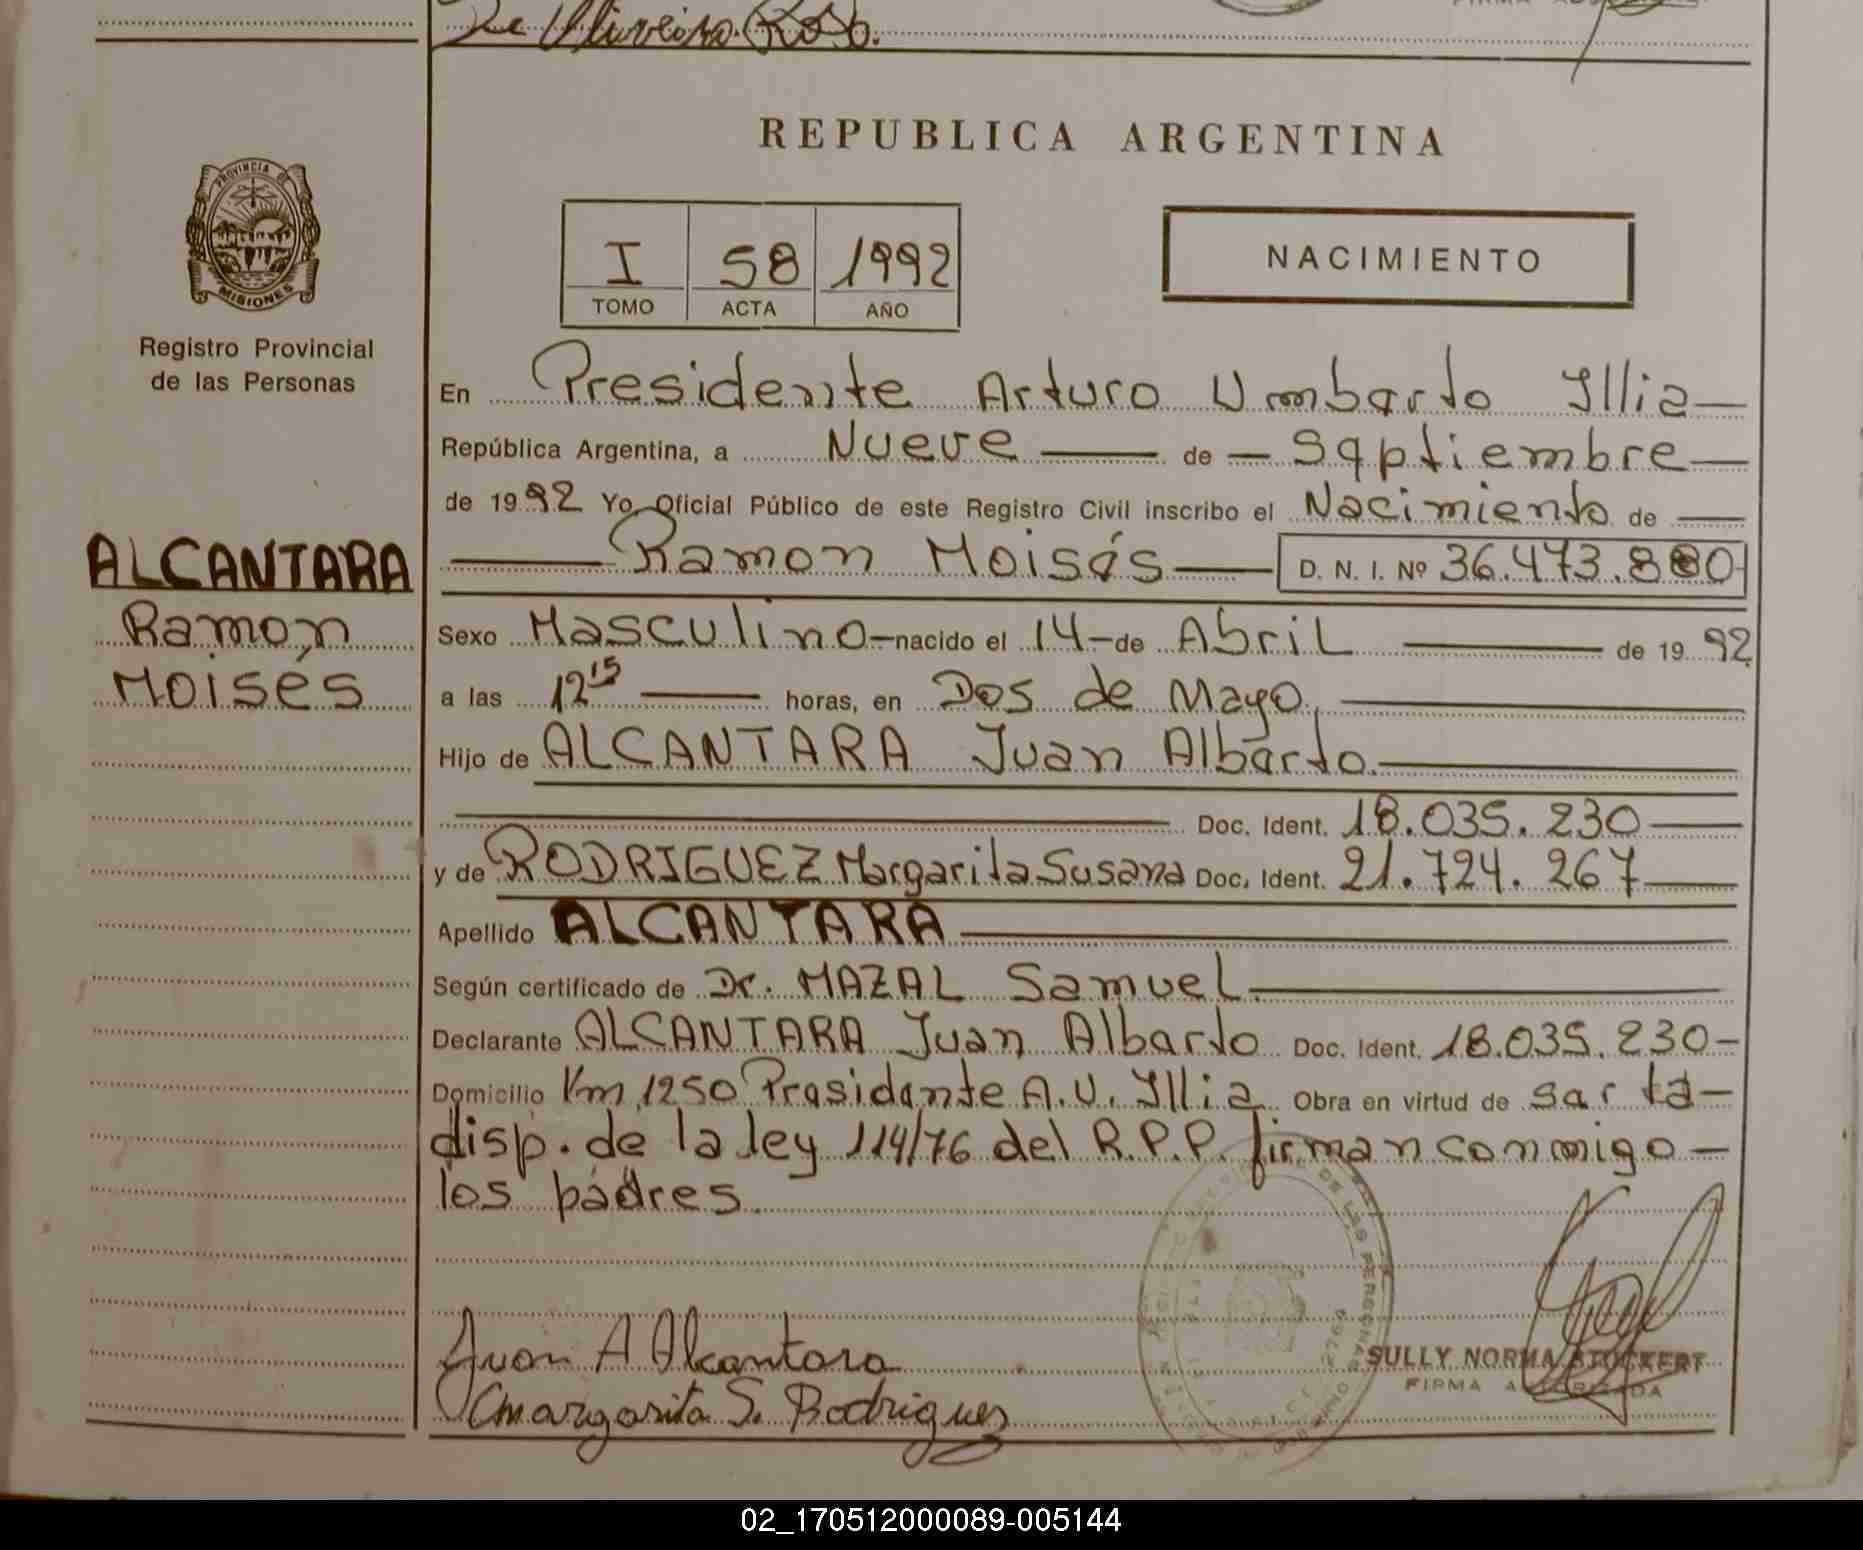 De Oliveira Rosa.
REPUBLICA ARGENTINA
PROVINCIA DE
MISIONES
Registro Provincial
de las Personas
I 58 1992
TOMO ACTA AÑO
NACIMIENTO
En Presidente Arturo Umbarto Illia
República Argentina, a Nueve de Saptiembre
de 1992 Yo Oficial Público de este Registro Civil inscribo el Nacimiento de
Ramon Moisés D. N. I. Nº 36.473.880
ALCANTARA
Ramon
Moisés
Sexo Masculino nacido el 14 de Abril de 1992
a las 12 15 horas, en Dos de Mayo,
Hijo de ALCANTARA Juan Albarto.
Doc. Ident. 18.035.230
y de RODRIGUEZ Margarita Susana Doc. Ident. 21.724.267
Apellido ALCANTARA
Según certificado de Dr. MAZAL Samuel.
Declarante ALCANTARA Juan Albarto Doc. Ident. 18.035.230
Domicilio Km 1250 Prasidante A.U. Illia Obra en virtud de sar ta-
disp. de la ley 114/76 del R.P.P. firman conmigo
los padres.
DE LAS PERSONAS
Juan A Alcantara
Margarita S. Rodriguez
SULLY NORMA STOCKERT
FIRMA AUTORIZADA
02_170512000089-005144